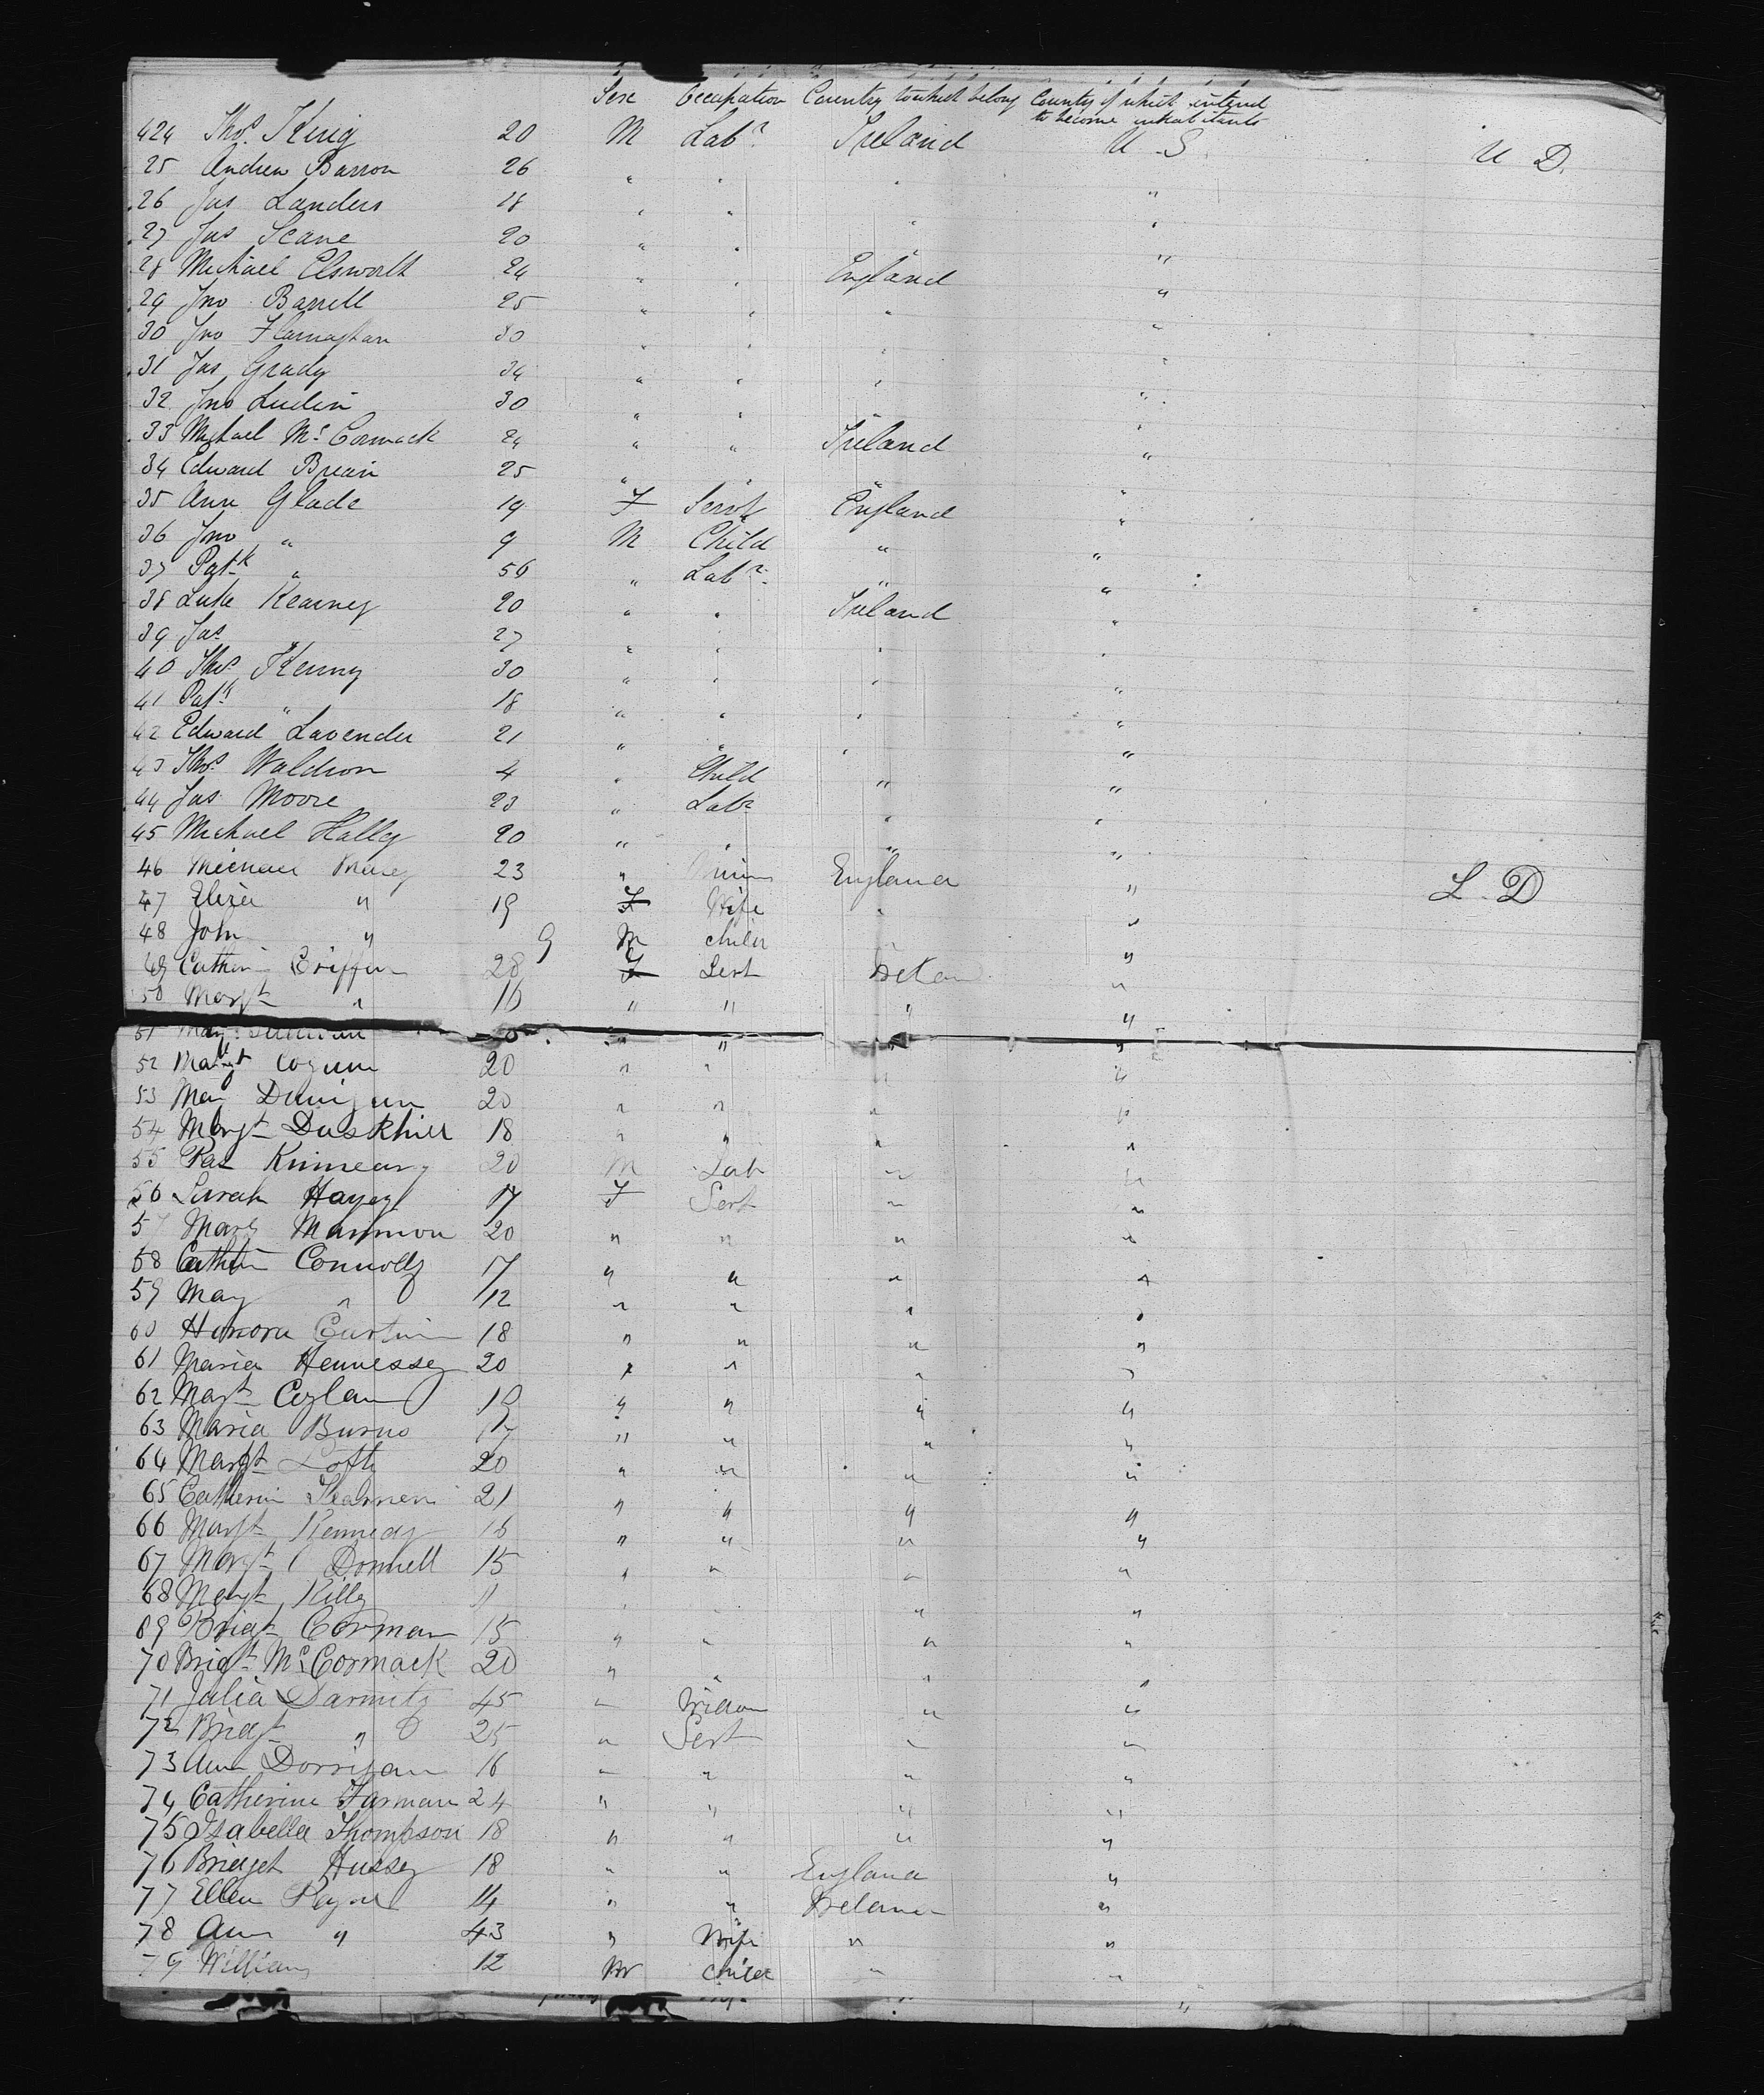 Sex Occupation Country to which belong Country of which intend
to become inhabitants
424 Thos King 20 M Labr Ireland U.S. U D.
25 Andrew Barron 26 " " " "
26 Jas Landers 18 " " " "
27 Jas Scane 20 " " " "
28 Michael Elsworth 24 " " England "
29 Jno Barrell 25 " " " "
30 Jno Flannaghan 30 " " " "
31 Jas Grady 34 " " " "
32 Jno 30 " " " "
33 Michael McCormack 24 " " Ireland "
34 Edward 25 " " " "
35 Ann Glade 19 F Servt England "
36 Jno " 9 M Child " "
37 Patk " 56 " Labr " "
38 Luke Kearney 20 " " Ireland "
39 Jas " 27 " " " "
40 Thos Kenny 30 " " " "
41 Patk " 18 " " " "
42 Edward Lavender 21 " " " "
43 Thos Waldron 4 " Child " "
44 Jas Moore 23 " Labr " "
45 Michael Hally 20 " " " "
46 Michael 23 " England " L. D
47 Eliza " 19 F Wife " "
48 John " 9 M child "
49 Catherin Griffin 28 F Sert Irelan "
50 Margt " 16 " " " "
51 " " " "
52 Margt 20 " " " "
53 Mary Dunigun 20 " " " "
54 Margt Duskhill 18 " " " "
55 Pat Kinneary 20 M Lab " "
56 Sarah 17 F Sert " "
57 Mary Mannion 20 " " " "
58 Cathrin Connolly 17 " " " "
59 Mary " 12 " " " "
60 Honora Curtin 18 " " " "
61 Maria Hennessey 20 " " " "
62 Margt 19 " " " "
63 Maria Burns 17 " " " "
64 Margt 20 " " " "
65 Catherin 21 " " " "
66 Margt Kennedy 16 " " " "
67 Margt O Donnell 15 " " " "
68 Margt Killy 11 " " " "
69 Brigt Corman 15 " " " "
70 Brigt McCormack 20 " " " "
71 Julia Darmity 45 " Widow " "
72 Bridgt " 25 " Sert " "
73 Ann Dorrigan 16 " " " "
74 Catherine Farman 24 " " " "
75 Isabella Thompson 18 " " " "
76 Bridget Hussey 18 " " England "
77 Ellen 14 " " Ireland "
78 Ann " 43 " Wife " "
79 William 12 M child " "